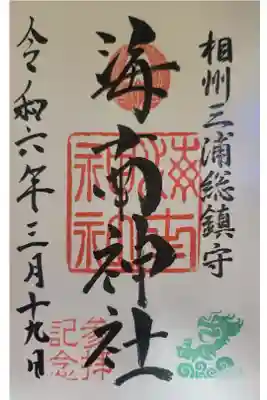 相州三浦総鎮守
海南神社
海南神社
参拝記念
令和六年三月十九日